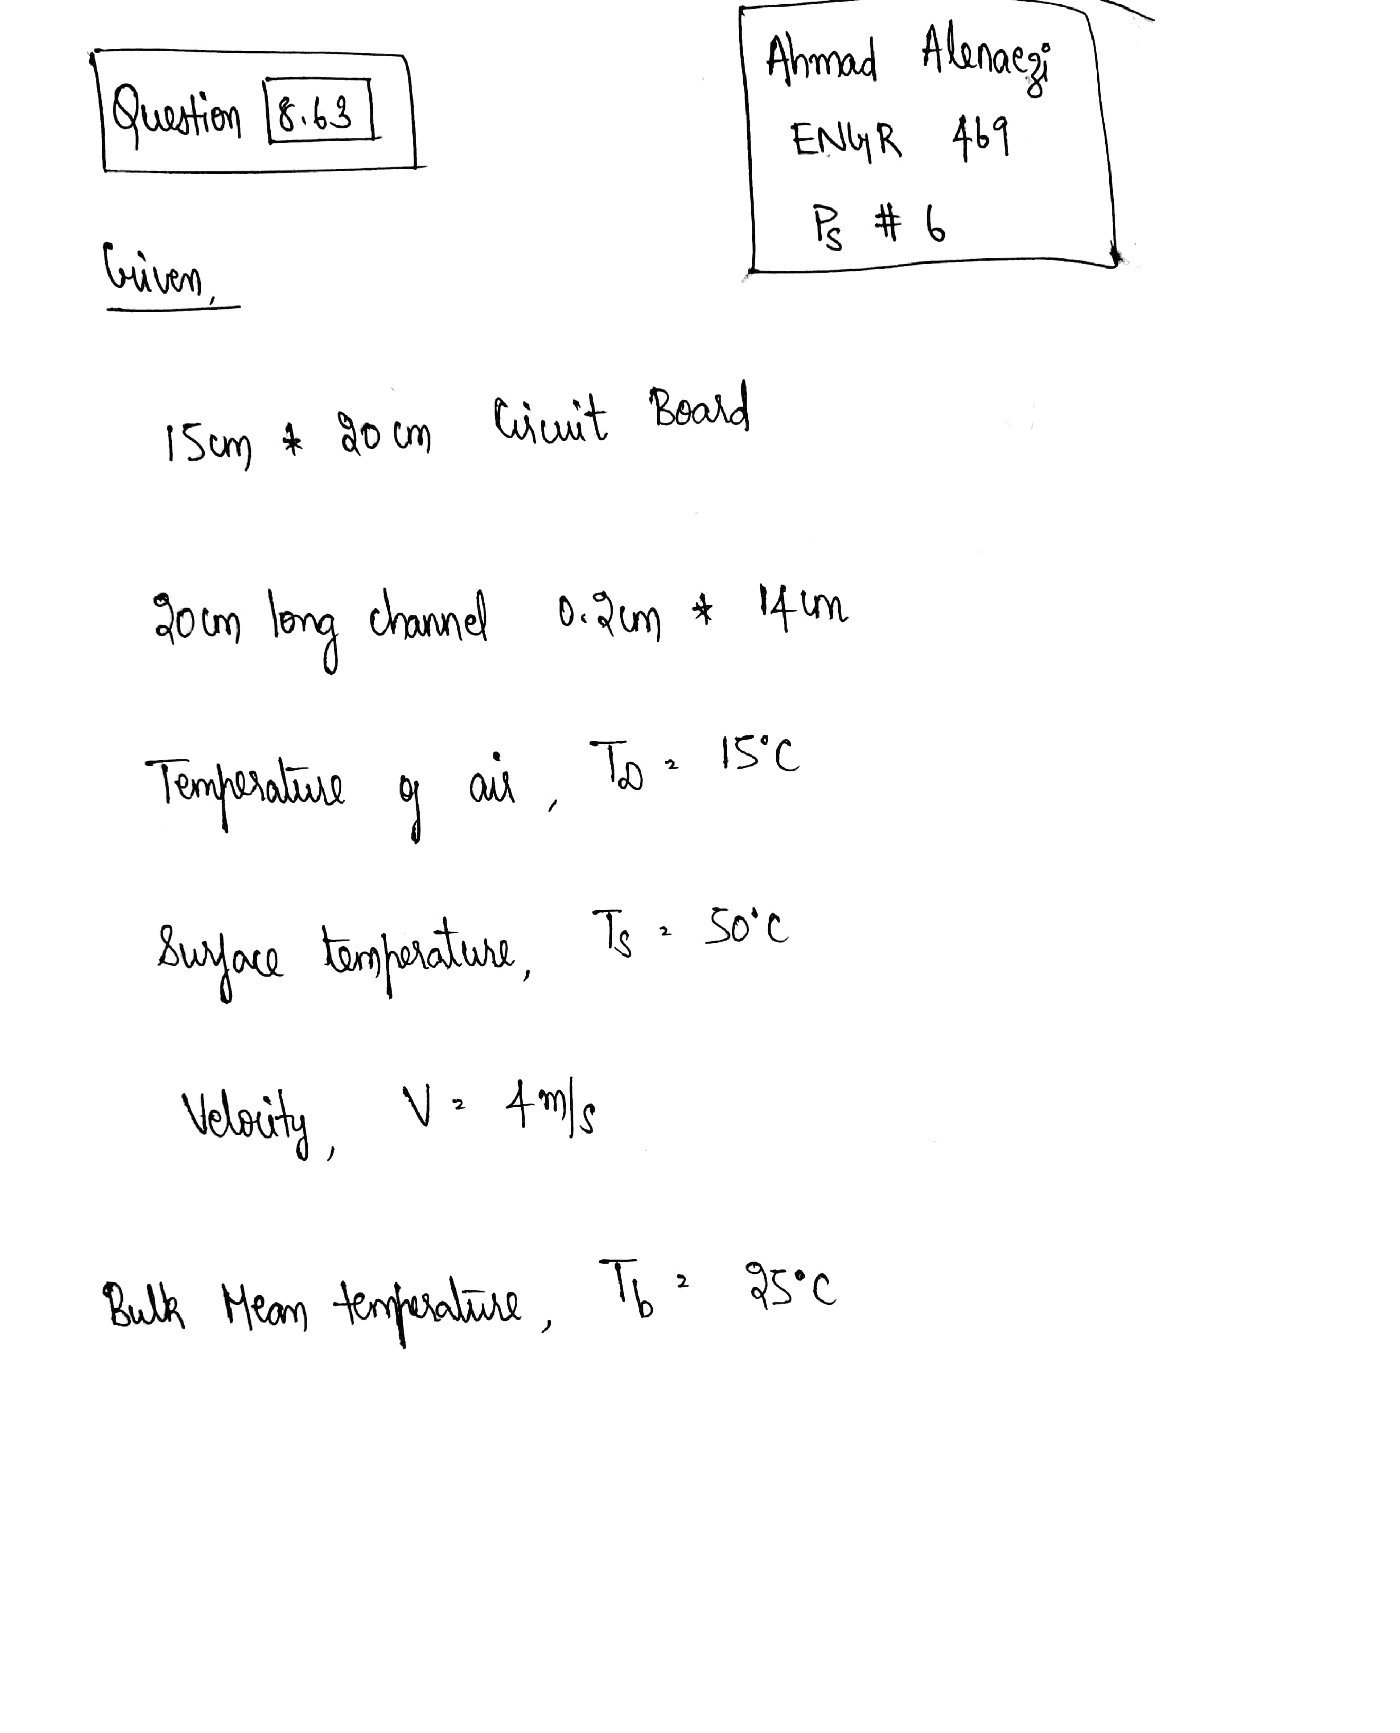 Ahmad Alenaezi
ENGR 469
Ps # 6
Question 8.63
Given,
15cm * 20cm Circuit Board
20cm long channel 0.2cm * 14cm
Temperature of air, T∞ = 15°C
Surface temperature, Ts = 50°C
Velocity, V = 4m/s
Bulk Mean temperature, Tb = 25°C